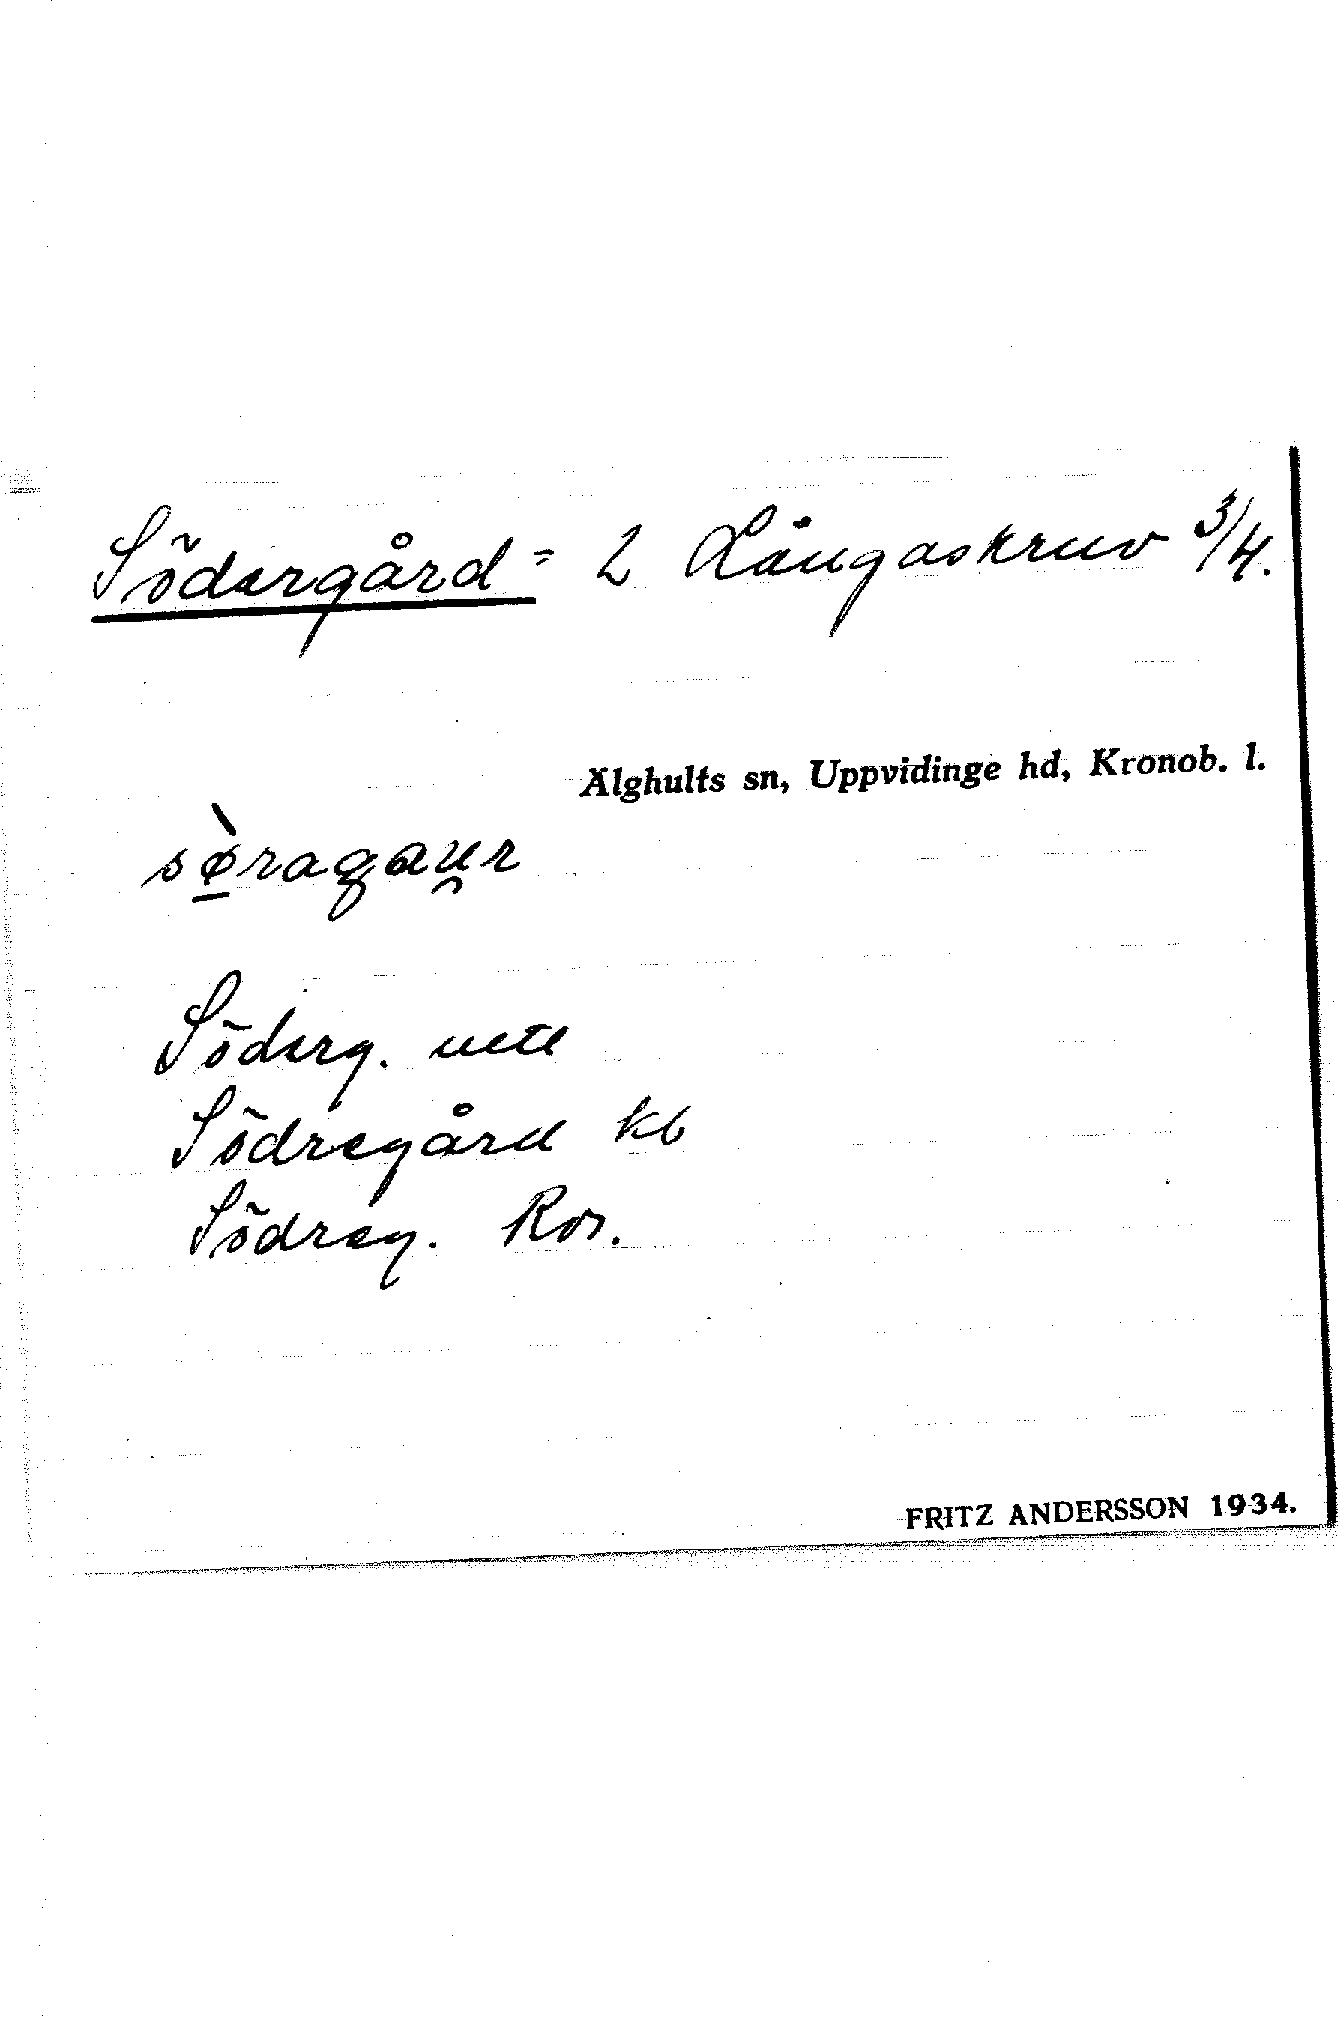 Södergård = 2 Långaskruv 3/4.
Älghults sn, Uppvidinge hd, Kronob. l.
sø̠̀ragau̯r
Söderg. uttl
Södregård kb
Södreg. Ror.
FRITZ ANDERSSON 1934.